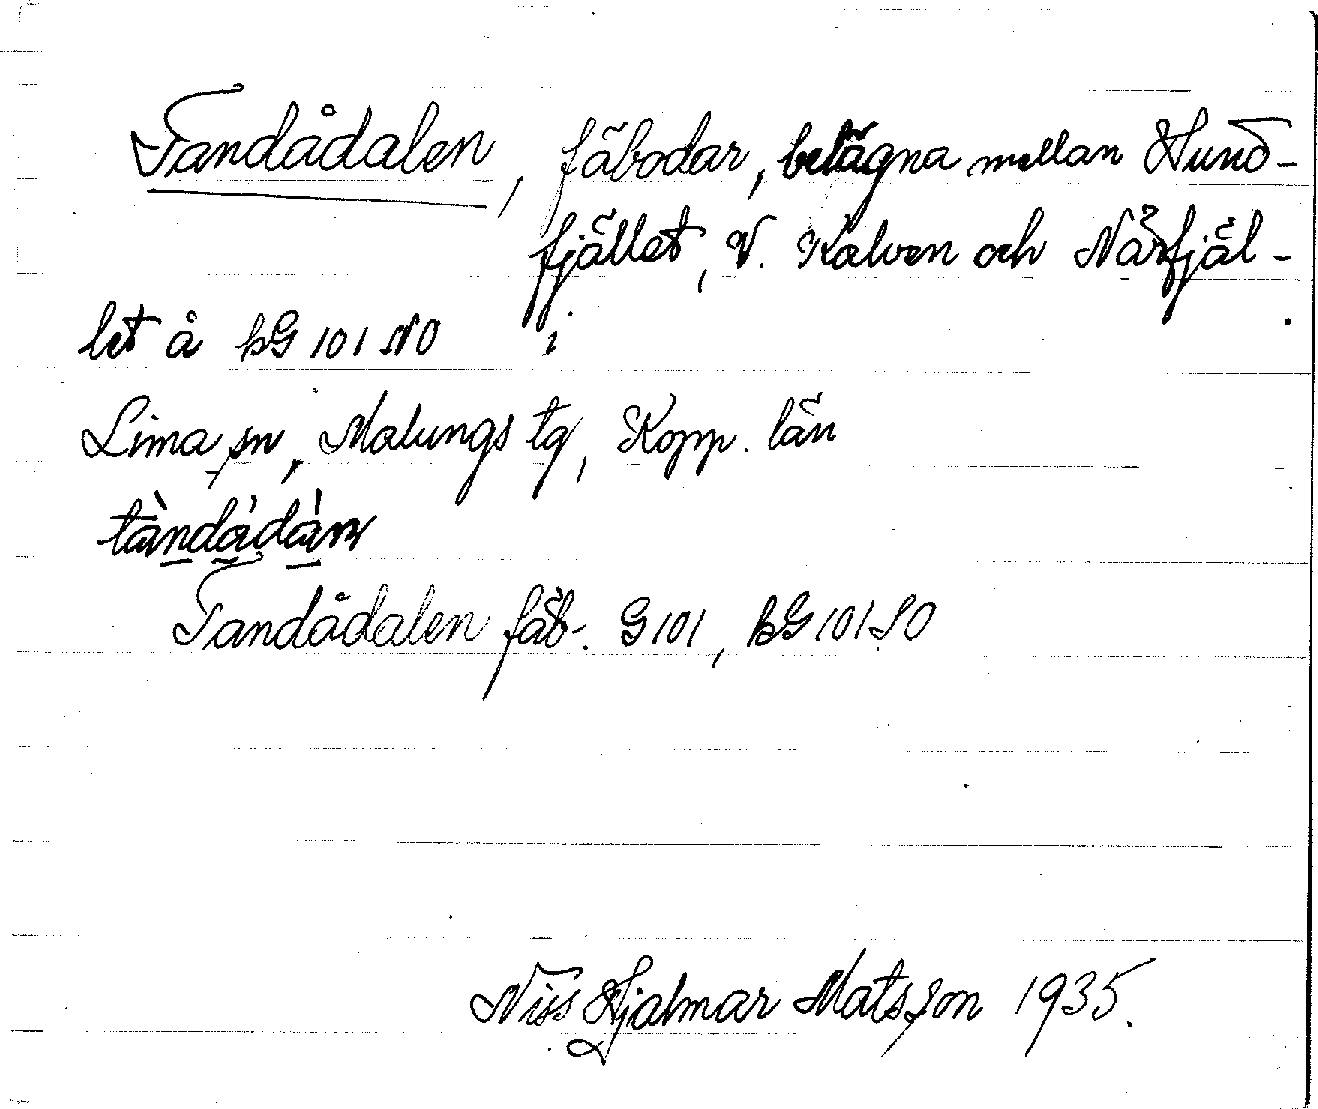 Tandådalen, fäbodar, belägna mellan Hund-
fjället, V. Kalven och Närfjäl-
let å bG 101 NO i
Lima sn, Malungs tg, Kopp. län
tàndådàn
Tandådalen fäb. G 101, bG 101 SO
Niss Hjalmar Matsson 1935.